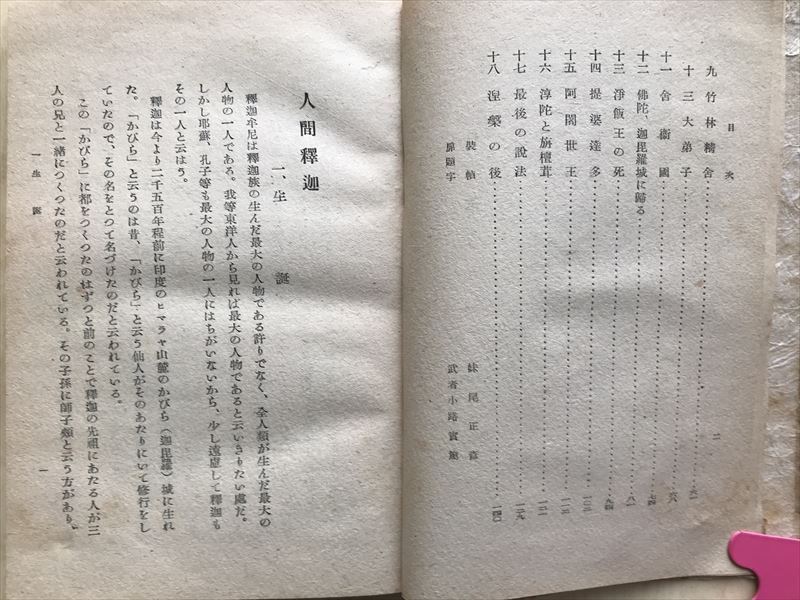 目次
二
九 竹林精舎……六一
十 三大弟子……六八
十一 舍衞國……七四
十二 佛陀、迦毘羅城に歸る……八一
十三 淨飯王の死
十四 提婆達多
十五 阿闍世王
十六 淳陀と旃檀茸
十七 最後の說法……一二九
十八 涅槃の後……一四〇
裝幀 妹尾正彦
扉題字 武者小路實篤
人間釋迦
一、生誕
釋迦牟尼は釋迦族の生んだ最大の人物である許りでなく、全人類が生んだ最大の
人物の一人である。我等東洋人から見れば最大の人物であると云いきりたい處だ。
しかし耶蘇、孔子等も最大の人物の一人にはちがいないから、少し遠慮して釋迦も
その一人と云はう。
釋迦は今より二千五百年程前に印度のヒマラヤ山麓のかびら(迦毘羅)城に生れ
た。「かびら」と云うのは昔、「かびら」と云う仙人がそのあたりにいて修行をし
ていたので、その名をとつて名づけたのだと云われている。
この「かびら」に都をつくつたのはずつと前のことで釋迦の先祖にあたる人が三
人の兄と一緒につくつたのだと云われている。その子孫に師子頰と云う方があり、
一 生誕
一